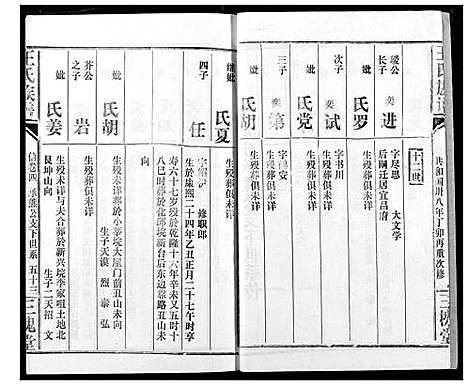 王氏族譜
共和国卅八年丁卯再重次修
三槐堂
十二世
緩公
长子
奕
进
字尽思 大文学
后嗣迁居宜昌府
妣
氏罗
生殁葬俱未详
次子
奕
试
字书川
生殁葬俱未详
妣
氏党
生殁葬俱未详
三子
奕
第
字 安
生殁葬俱未详
妣
氏胡
生殁葬俱未详
继妣
氏夏
生殁葬俱未详
四子
任
修职郎
生於康熙二十四年乙丑正月二十七午时享
寿六十七岁殁於乾隆十六年辛未又五时十
八巳时葬於化邱垸新台后东边靠路丑山未
向
妣
氏胡
生殁未详葬於小莘垸大屋门前丑山未向
生子天谟 烈 泰 弘
芥公
之子
岩
生殁葬俱未详
妣
氏姜
生殁未详与天合葬於新兴垸李家咀土地北
艮坤山向 生子二天招 文
王氏族譜
信卷四 承熊公支下世系 五十三
三槐堂